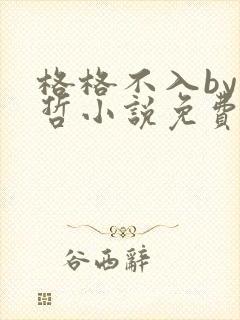 格格不入by
哲小説免費
谷西辭